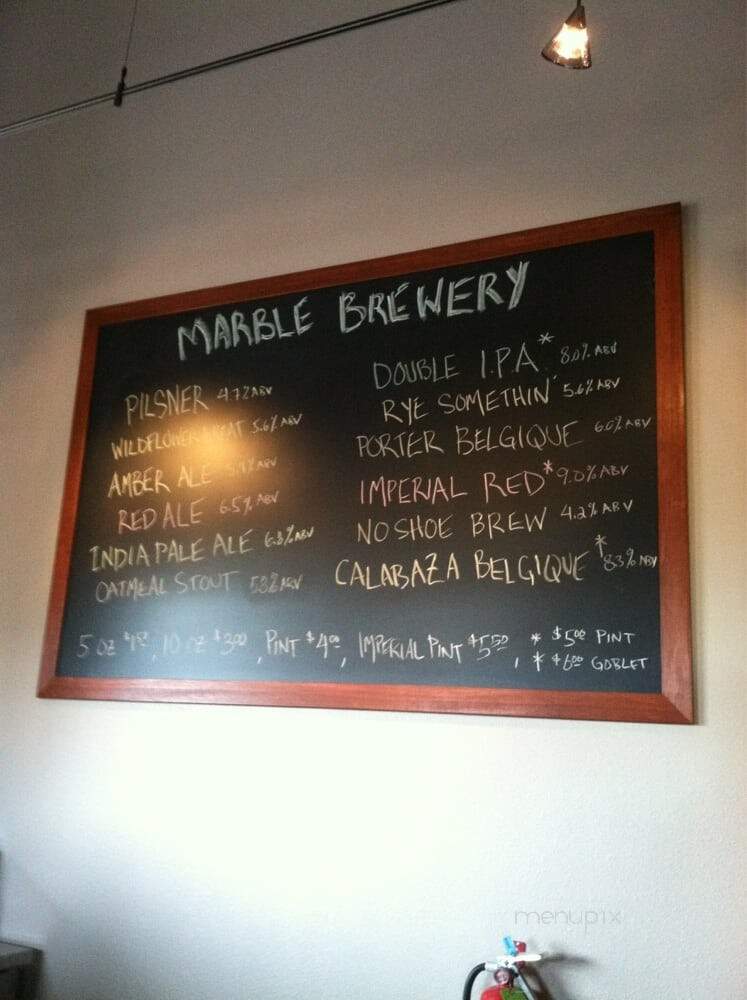 MARBLE BREWERY
PILSNER 4.7% ABV
WILDFLOWER WHEAT 5.6% ABV
AMBER ALE ABV
RED ALE 6.5% ABV
INDIA PALE ALE 6.8% ABV
OATMEAL STOUT 5.8% ABV
DOUBLE I.P.A* 8.0% ABV
RYE SOMETHIN' 5.6% ABV
PORTER BELGIQUE 6.0% ABV
IMPERIAL RED* 9.0% ABV
NO SHOE BREW 4.2% ABV
CALABAZA BELGIQUE * 8.3% ABV
5 OZ, 10 OZ $3.00, PINT $4.00, IMPERIAL PINT $5.50, * $5.00 PINT
* $6.00 GOBLET
menupix